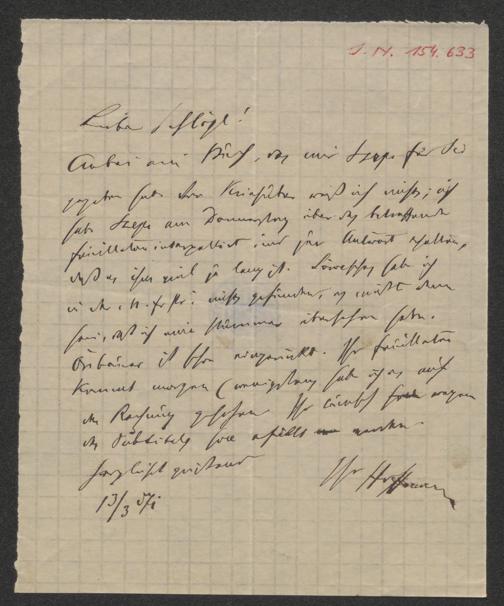 I. N. 154.633
Lieber Schlögl!
Anbei ein Buch, das mir Szeps für Sie
gegeben hat. Von weiß ich nichts; ich
habe Szeps am Donnerstag über das betreffende
Feuilleton interpellirt und zur Antwort erhalten,
daß es ihm viel zu lang ist. habe ich
in der N. fr. Pr. nichts gefunden, es müßte denn
sein, daß ich eine Nummer übersehen habe.
ist schon eingerückt. Ihr Feuilleton
kommt morgen (wenigstens habe ich es auf
der Rechnung gesehen. Ihr Wunsch wegen
des Subtitels soll erfüllt werden.
Herzlichst grüßend
Ihr Hoffmann
13/3